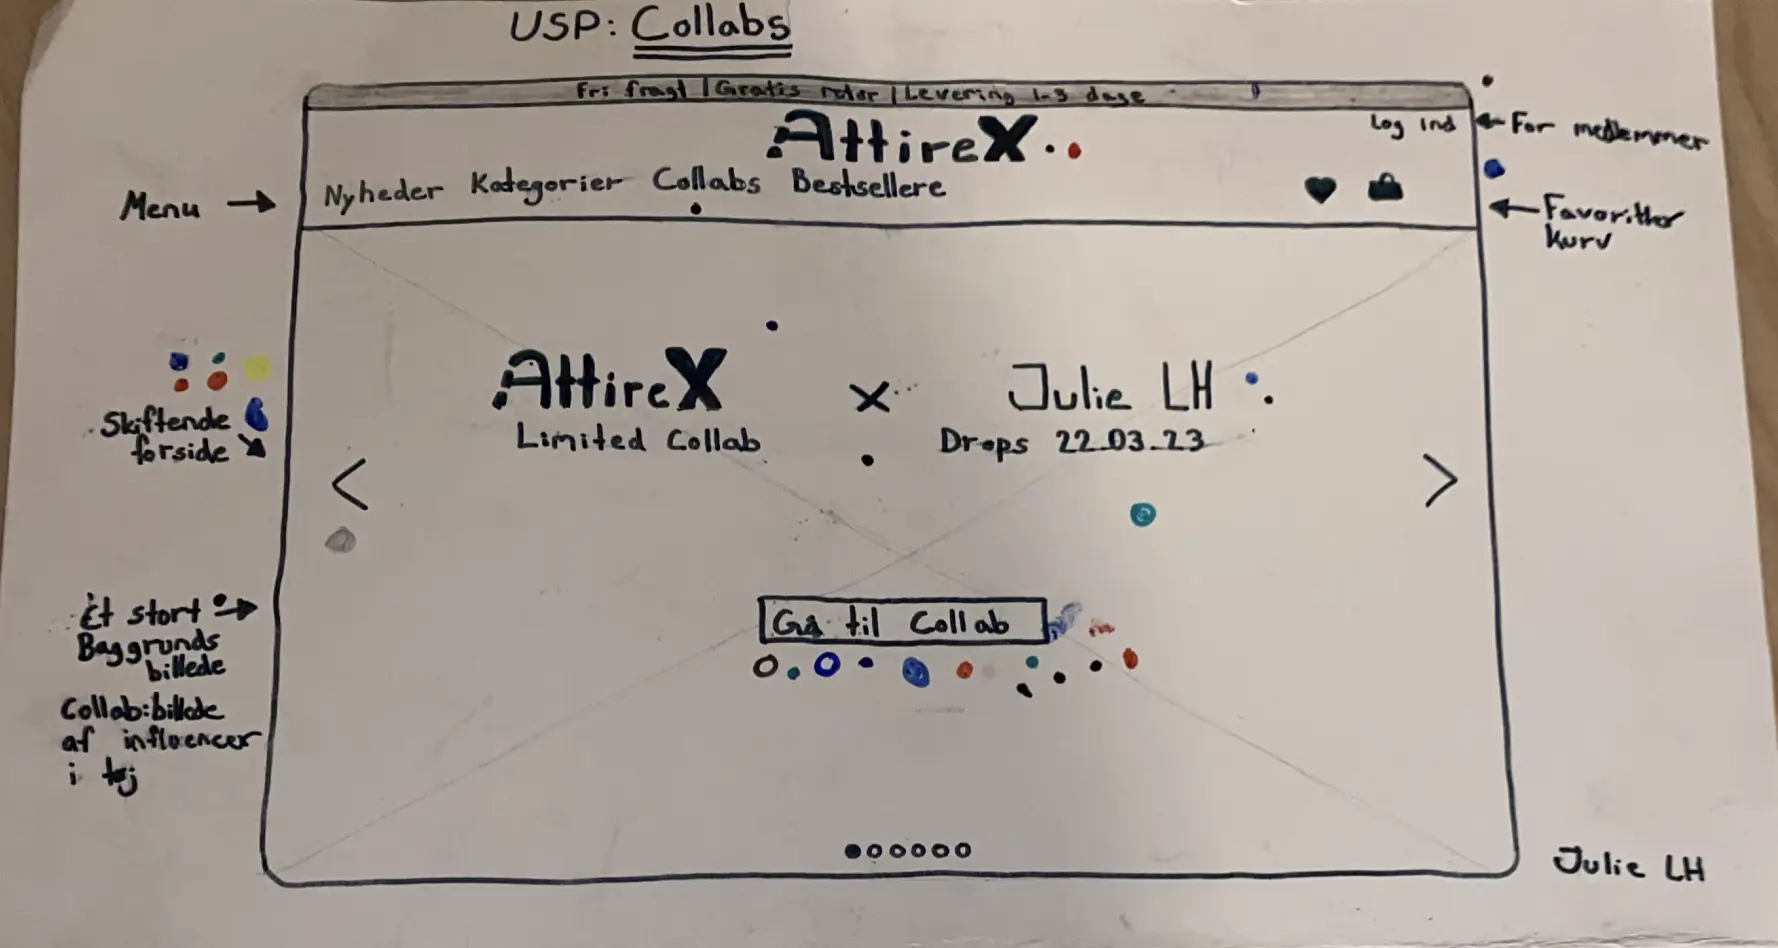 USP: Collabs
Fri fragt | Gratis retur | Levering 1-3 dage
AttireX
Log ind
← For medlemmer
Menu →
Nyheder Kategorier Collabs Bestsellere
← Favoritter
kurv
AttireX x Julie LH
Limited Collab Drops 22.03.23
Skiftende
forside
<
>
Ét stort →
Baggrunds
billede
Collab: billede
af influencer
i tøj
Gå til Collab
Julie LH